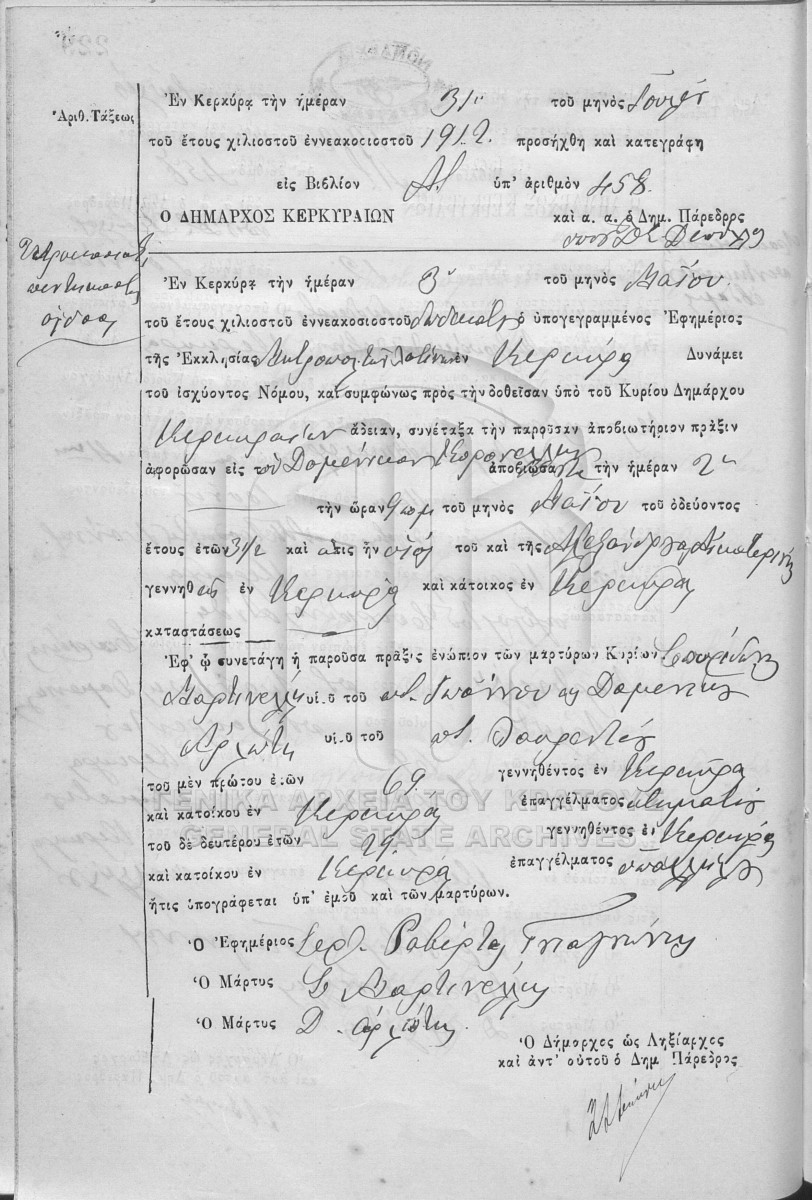 Ἀριθ. Τάξεως
Ἐν Κερκύρᾳ τὴν ἡμέραν 31 τοῦ μηνὸς
τοῦ ἔτους χιλιοστοῦ ἐννεακοσιοστοῦ 1912 προσήχθη καὶ κατεγράφη
εἰς Βιβλίον Α1 ὑπ' ἀριθμὸν 458.
Ο ΔΗΜΑΡΧΟΣ ΚΕΡΚΥΡΑΙΩΝ καὶ ἀ. ἀ. ὁ Δημ. Πάρεδρος
Τετρακοσιοστ
πεντηκοστ
ὀγδοα
Ἐν Κερκύρᾳ τὴν ἡμέραν 3 τοῦ μηνὸς Μαΐου
τοῦ ἔτους χιλιοστοῦ ἐννεακοσιοστοῦ δωδεκάτου ὁ ὑπογεγραμμένος Ἐφημέριος
τῆς Ἐκκλησίας Μητροπόλεως Λατίνων ἐν Κερκύρᾳ Δυνάμει
τοῦ ἰσχύοντος Νόμου, καὶ συμφώνως πρὸς τὴν δοθεῖσαν ὑπὸ τοῦ Κυρίου Δημάρχου
Κερκυραίων ἄδειαν, συνέταξα τὴν παροῦσαν ἀποβιωτήριον πρᾶξιν
ἀφορῶσαν εἰς τὸν Δομένικον ἀποβιώσαντα τὴν ἡμέραν 2
τὴν ὥραν 9 πμ τοῦ μηνὸς Μαΐου τοῦ ὁδεύοντος
ἔτους ἐτῶν 3 1/2 καὶ ὅστις ἦν υἱὸς τοῦ καὶ τῆς Ἀλεξάνδρου Αἰκατερίνης
γεννηθεὶς ἐν Κερκύρᾳ καὶ κάτοικος ἐν Κερκύρᾳ
καταστάσεως
Ἐφ' ᾧ συνετάγη ἡ παροῦσα πρᾶξις ἐνώπιον τῶν μαρτύρων Κυρίων Σπυρίδων
Μαρτινέλλη υἱοῦ τοῦ ποτ. Ἰωάννου καὶ Δομενίκου
Ἀρλώτη υἱοῦ τοῦ ποτ. Λαυρεντίου
τοῦ μὲν πρώτου ἐτῶν 69 γεννηθέντος ἐν Κερκύρᾳ
καὶ κατοίκου ἐν Κερκύρᾳ ἐπαγγέλματος κτηματίου
τοῦ δὲ δευτέρου ἐτῶν 29 γεννηθέντος ἐν Κερκύρᾳ
καὶ κατοίκου ἐν Κερκύρᾳ ἐπαγγέλματος ὑπαλλήλου
ἥτις ὑπογράφεται ὑπ' ἐμοῦ καὶ τῶν μαρτύρων.
Ὁ Ἐφημέριος Ροβέρτος
Ὁ Μάρτυς Σ Μαρτινέλλης
Ὁ Μάρτυς Δ. Ἀρλώτης
Ὁ Δήμαρχος ὡς Ληξίαρχος
καὶ ἀντ' αὐτοῦ ὁ Δημ Πάρεδρος
ΓΕΝΙΚΑ ΑΡΧΕΙΑ ΤΟΥ ΚΡΑΤΟΥΣ
GENERAL STATE ARCHIVES